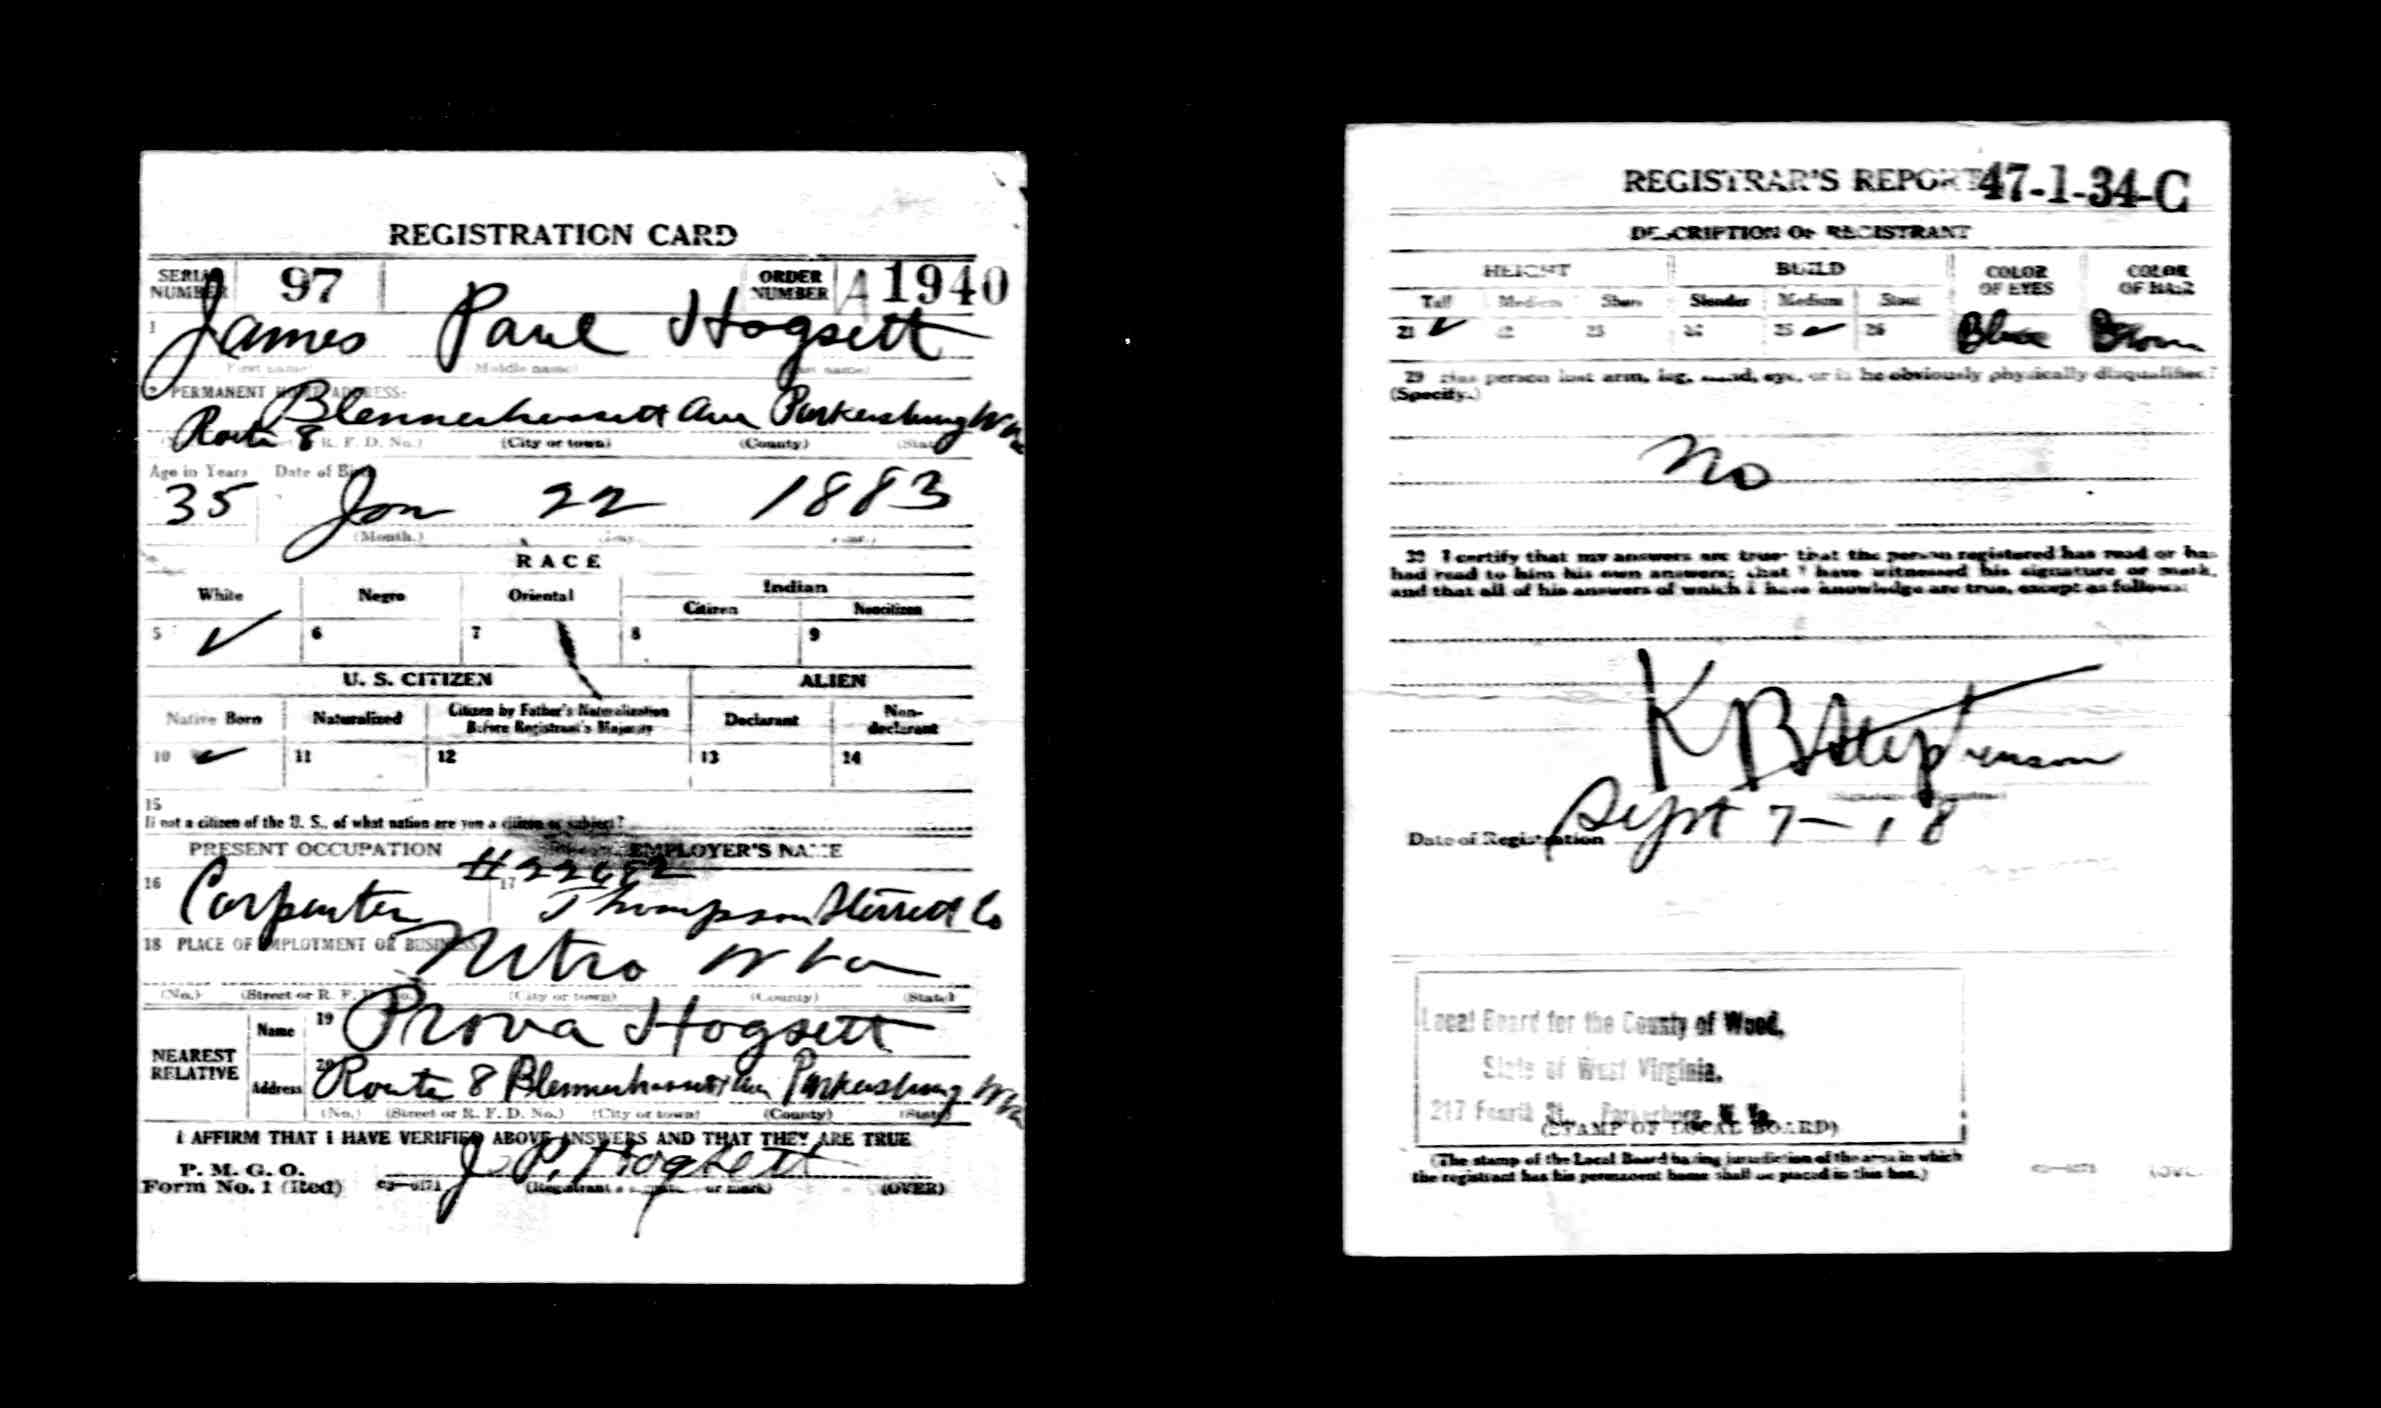 REGISTRATION CARD
SERIAL NUMBER 97 ORDER NUMBER A1940
1 James Paul Hogsett
(First name) (Middle name) (Last name)
2 PERMANENT HOME ADDRESS:
Route 8 Blennerhassett Ave Parkersburg W Va
(R. F. D. No.) (City or town) (County) (State)
Age in Years Date of Birth
35 Jan 22 1883
(Month.) (Day.) (Year.)
RACE
White Negro Oriental Indian
Citizen Noncitizen
5 ✓ 6 7 8 9
U. S. CITIZEN ALIEN
Native Born Naturalized Citizen by Father's Naturalization Before Registrant's Majority Declarant Non-declarant
10 ✓ 11 12 13 14
15
If not a citizen of the U. S., of what nation are you a citizen or subject?
PRESENT OCCUPATION EMPLOYER'S NAME
16 Carpenter 17 Thompson Sterrett Co
18 PLACE OF EMPLOYMENT OR BUSINESS
Nitro W Va
(No.) (Street or R. F. D. No.) (City or town) (County) (State)
NEAREST RELATIVE
Name 19 Prova Hogsett
Address 20 Route 8 Blennerhassett Ave Parkersburg W Va
(No.) (Street or R. F. D. No.) (City or town) (County) (State)
I AFFIRM THAT I HAVE VERIFIED ABOVE ANSWERS AND THAT THEY ARE TRUE
P. M. G. O.
Form No. 1 (Red) J P. Hogsett
(Registrant's signature or mark) (OVER)
REGISTRAR'S REPORT 47-1-34-C
DESCRIPTION OF REGISTRANT
HEIGHT BUILD COLOR OF EYES COLOR OF HAIR
Tall Medium Short Slender Medium Stout
21 ✓ 22 23 24 25 ✓ 26 Blue Brown
29 Has person lost arm, leg, hand, eye, or is he obviously physically disqualified?
(Specify.)
No
30 I certify that my answers are true; that the person registered has read or has
had read to him his own answers; that I have witnessed his signature or mark,
and that all of his answers of which I have knowledge are true, except as follows:
K B Stephenson
(Signature of Registrar)
Date of Registration Sept 7-18
Local Board for the County of Wood,
State of West Virginia.
217 Fourth St., Parkersburg, W. Va.
(STAMP OF LOCAL BOARD)
(The stamp of the Local Board having jurisdiction of the area in which
the registrant has his permanent home shall be placed in this box.)
(OVER)